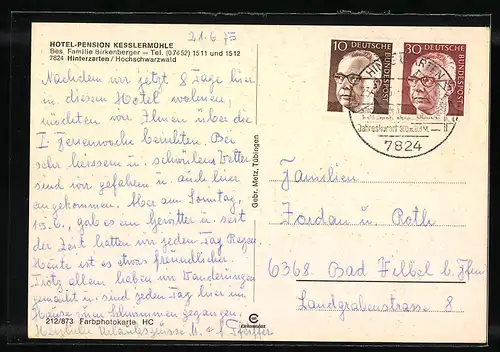 21.6.75
HOTEL-PENSION KESSLERMÜHLE
Bes. Familie Birkenberger — Tel. (07652) 1511 und 1512
7824 Hinterzarten / Hochschwarzwald
Nachdem wir jetzt 8 Tage hier
in diesem Hotel wohnen,
möchten wir Ihnen über die
I. Ferienwoche berichten. Bei
sehr heissem u. schönem Wetter
sind wir gefahren u. auch hier
angekommen. Aber am Sonntag,
15.6., gab es ein Gewitter u. seit
der Zeit hatten wir jeden Tag Regen.
Heute ist es etwas freundlicher.
Trotz allem haben wir Wanderungen
gemacht u. sind jeden Tag hier im
Hause zum Schwimmen gegangen.
Herzliche Urlaubsgrüsse M. u. Pfeiffer
212/873 Farbphotokarte HC
Gebr. Metz, Tübingen
10 DEUTSCHE BUNDESPOST
30 DEUTSCHE BUNDESPOST
HINTERZARTEN
Jahreskurort
7824
Familien
Jordan u. Roth
6368 Bad Vilbel b/Ffm
Landgrabenstrasse 8